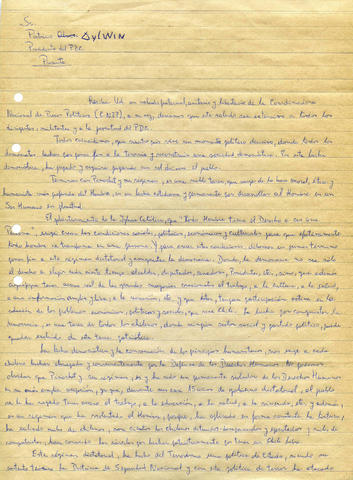 Sr.
Patricio AylWIN
Presidente del PDC
Presente
Reciba Ud. un saludo fraternal, unitario y libertario de la Coordinadora
Nacional de Presos Políticos (C.N.PP), a su vez, deseamos que este saludo sea extensivo a todos los
dirigentes, militantes y a la juventud del PDC.
Todos coincidimos, que nuestro país vive un momento político decisivo, donde todos los
demócratas luchan por poner fin a la tiranía y reconstruir una sociedad democrática. En esta lucha
democrática, ha jugado y seguirá jugando un rol decisivo el pueblo.
Terminar con Pinochet y su régimen, es una noble tarea, que surge de lo más moral, ético y
humano más profundo del Hombre, es un lucha cotidiana y permanente por desarrollar al Hombre en un
Ser Humano en plenitud.
El planteamiento de la Iglesia Católica, que "Todo Hombre tiene el Derecho a ser una
Persona", surge crear las condiciones sociales, políticas, económicas y culturales para que efectivamente
todo hombre se transforme en una persona. Y para crear estas condiciones, debemos en primer término
poner fin a este régimen dictatorial y conquistar la democracia. Donde, la democracia no sea sólo
el derecho a elegir cada cierto tiempo: alcaldes, diputados, senadores, Presidente, etc., sino, que además
el pueblo tenga acceso real de las grandes mayorías nacionales al trabajo, a la cultura, a la salud,
a una información amplia y libre, a la recreación, etc. y que éstos, tengan participación activa en la
solución de los problemas económicos, políticos y sociales, que vive Chile. La lucha por conquistar la
democracia, es una tarea de todos los chilenos, donde ningún sector social y partido político, puede
quedar excluido de esta tarea patriótica.
La lucha democrática y la consecución de los principios humanitarios, nos exige a cada
chileno luchar abnegada y consecuentemente por la Defensa de los Derechos Humanos. No podemos
olvidar que Pinochet y su régimen, es y ha sido un permanente violador de los Derechos Humanos
en su más amplia acepción, ya que, durante sus casi 15 años de gobierno dictatorial, al pueblo
se le ha negado tener acceso al trabajo, a la educación, a la salud, a la vivienda, etc, y además,
es un régimen que ha maltratado al Hombre, porque, ha aplicado en forma constante la tortura,
ha exiliado miles de chilenos, son cientos los chilenos detenidos-desaparecidos y ejecutados, y miles de
compatriotas, han conocido las cárceles por luchar patrióticamente por un Chile libre.
Este régimen dictatorial, ha hecho del Terrorismo una política de Estado, siendo su
sustento teórico la Doctrina de Seguridad Nacional y con esta política de terror ha atacado